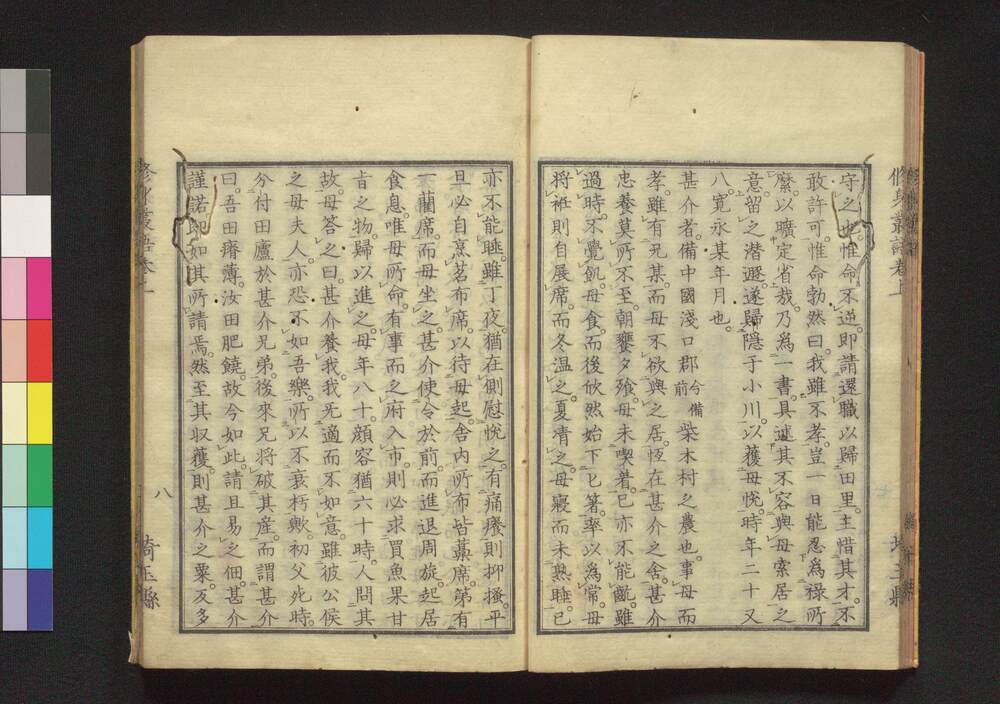 守之也。惟命不逆。即請還職以歸田里。主惜其才。不
敢許可。惟命勃然曰。我雖不孝。豈一日能忍為祿所
縻。以曠定省哉。乃為一書。具述其不容與母索居之
意。留之潛遯。遂歸隱于小川。以獲母悅。時年二十又
八。寬永某年月也。
甚介者。備中國淺口郡今備前柴木村之農也。事母而
孝。雖有兄某。而母不欲與之居。恆在甚介之舍。甚介
忠養莫所不至。朝饔夕飱。母未喫着。已亦不能飢。雖
過時。不覺飢。母食。而後欣然始下匕箸。率以為常。母
將袵。則自展席。而冬温之。夏凊之。母寢而未熟睡。已
亦不能睡。雖丁夜。猶在側慰悅之。有痛癢則抑搔。平
旦必自烹茗布席。以待母起。舍內所布皆藁席。第有
一藺席。而母坐之。甚介使令於前。而進退周旋。起居
食息。唯母所命。有事而之府入市。則必求買魚果甘
旨之物。歸以進之。母年八十。顏容猶六十時。人問其
故。母答之曰。甚介養我。我无適而不如意。雖彼公侯
之母夫人。亦恐不如吾樂。所以不衰朽歟。初父死時。
分付田廬於甚介兄弟。後來兄將破其產。而謂甚介
曰。吾田瘠薄。汝田肥饒。故今如此。請且易之佃。甚介
謹諾。即如其所請焉。然至其収穫。則甚介之粟。反多
修身叢語卷上
八
埼玉縣